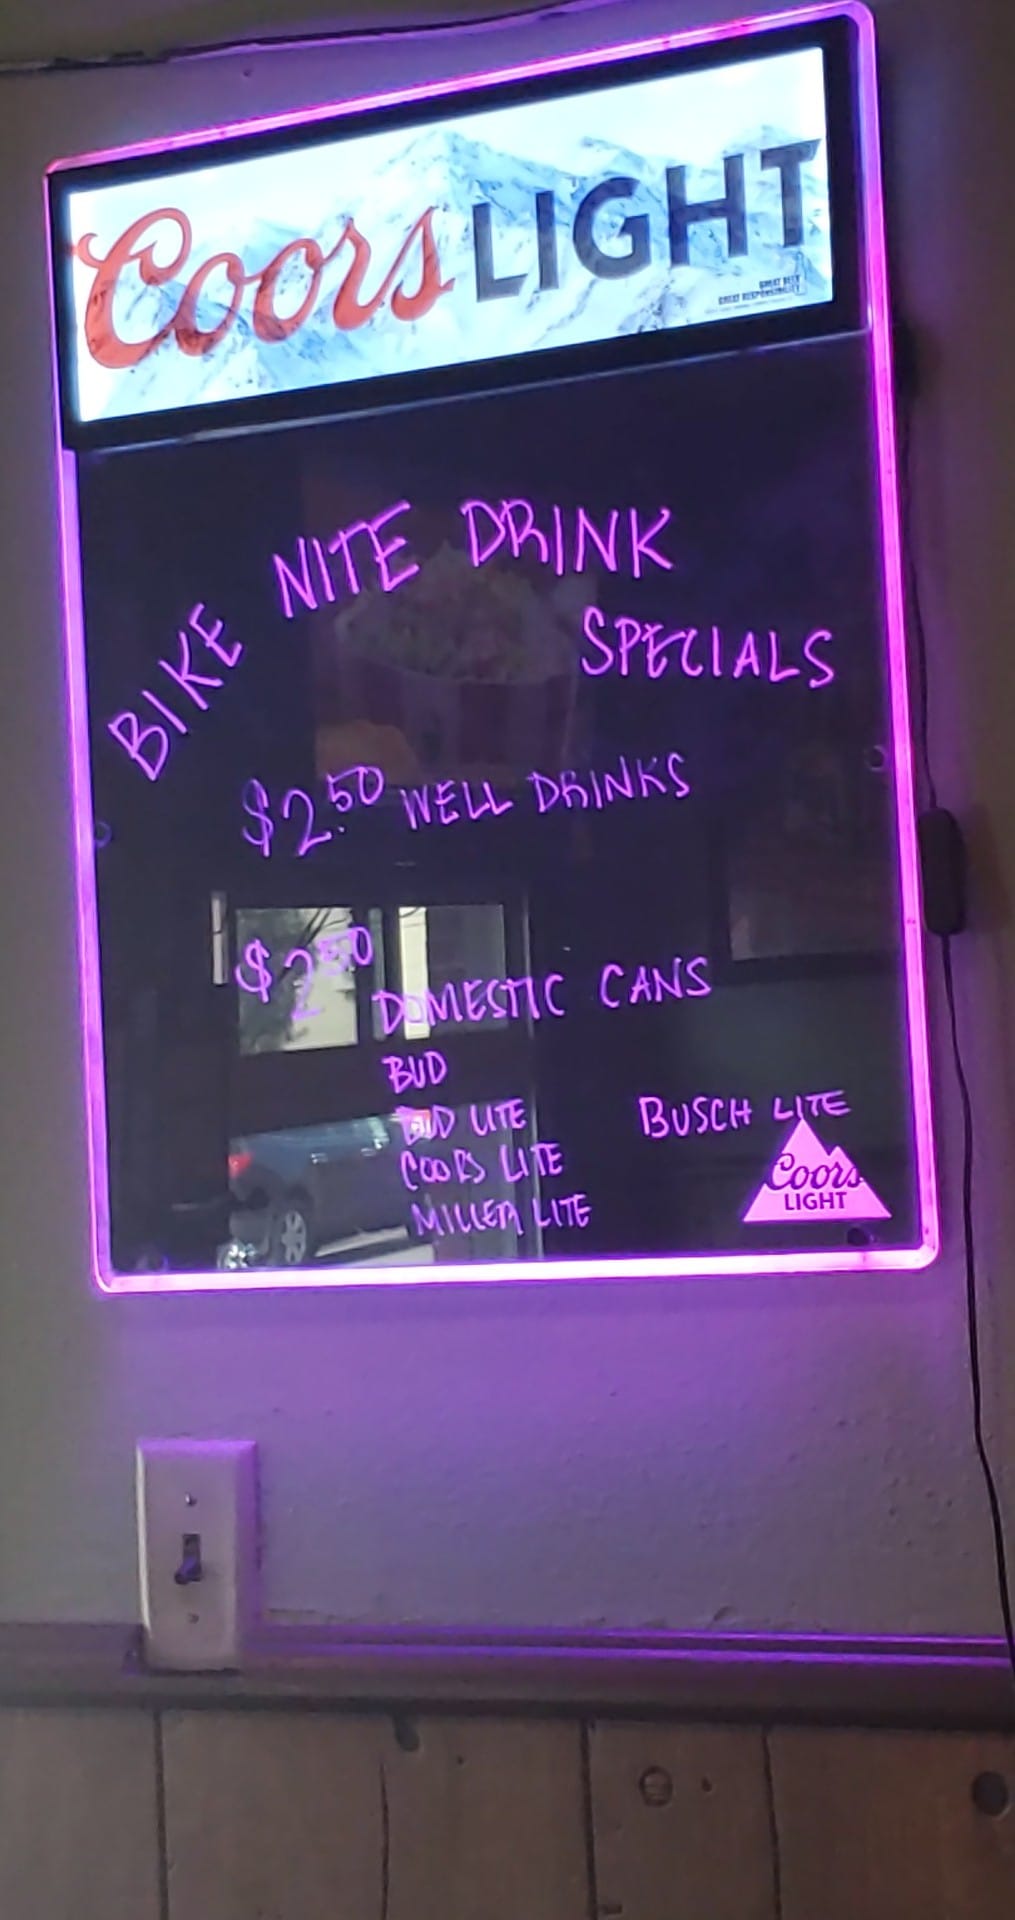 Coors LIGHT
GREAT BEER
GREAT RESPONSIBILITY
BIKE NITE DRINK
SPECIALS
$2.50 WELL DRINKS
$2.50 DOMESTIC CANS
BUD
BUD LITE
BUSCH LITE
COORS LITE
MILLER LITE
Coors
LIGHT